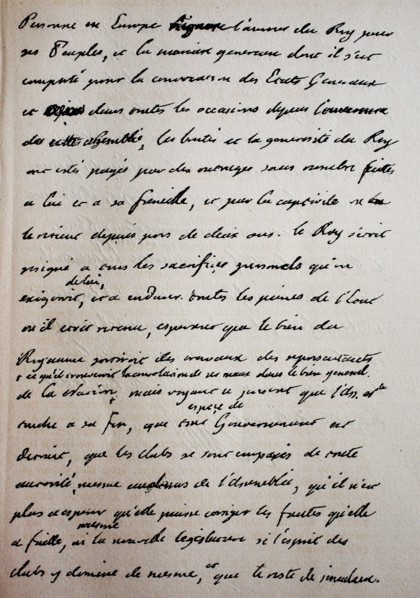 Personne en Europe ignore l'amour du Roy pour
ses Peuples, et la maniere genereuse dont il s'est
comporté pour la convocation des Etats Generaux
et dans toutes les occasions depuis l'ouverture
de cette assemblée, les bontés et la generosité du Roy
ont estés payés par des outrages sans nombre faites
a lui et a sa famille, et par la captivité ou
depuis pres de deux ans. le Roy s'etoit
resigné a tous les sacrifices personels qu'on
de lui,
exigeroit, et a endurer toutes les peines de l'Etat
ou il etoit reduit, esperant que le bien du
Royaume sortiroit des travaux des representants
et ce qu'il trouveroit la consolation de ses maux dans le bien general.
de la Nation, mais voyant a present que l'Ass.
espece de
touche a sa fin, que tout Gouvernement est
detruit, que les clubs se sont emparés de toute
autorité, mesme au dessus de l'Assemblée, qu'il n'est
plus a esperer qu'elle puisse corriger les fautes qu'elle
mesme
a faites, ni la nouvelle legislature si l'esprit des
clubs y domine de mesme, et que le reste de